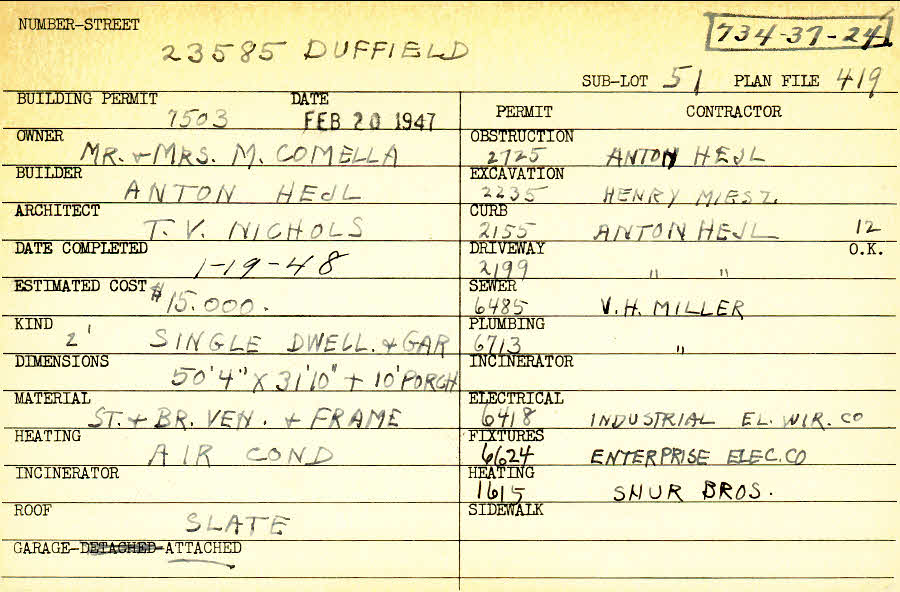 NUMBER-STREET
734-37-24
23585 DUFFIELD
SUB-LOT 51 PLAN FILE 419
BUILDING PERMIT 7503 DATE FEB 20 1947
OWNER MR. & MRS. M. COMELLA
BUILDER ANTON HEJL
ARCHITECT T. V. NICHOLS
DATE COMPLETED 1-19-48
ESTIMATED COST $15.000.
KIND 2' SINGLE DWELL. & GAR
DIMENSIONS 50'4" X 31'10" + 10' PORCH
MATERIAL ST. & BR. VEN. & FRAME
HEATING AIR COND
INCINERATOR
ROOF SLATE
GARAGE-DETACHED-ATTACHED
PERMIT CONTRACTOR
OBSTRUCTION 2725 ANTON HEJL
EXCAVATION 2235 HENRY MIESZ.
CURB 2155 ANTON HEJL 12
DRIVEWAY 2199 " " O.K.
SEWER 6485 V. H. MILLER
PLUMBING 6713 "
INCINERATOR
ELECTRICAL 6418 INDUSTRIAL EL. WIR. CO
FIXTURES 6624 ENTERPRISE ELEC. CO
HEATING 1615 SHUR BROS.
SIDEWALK